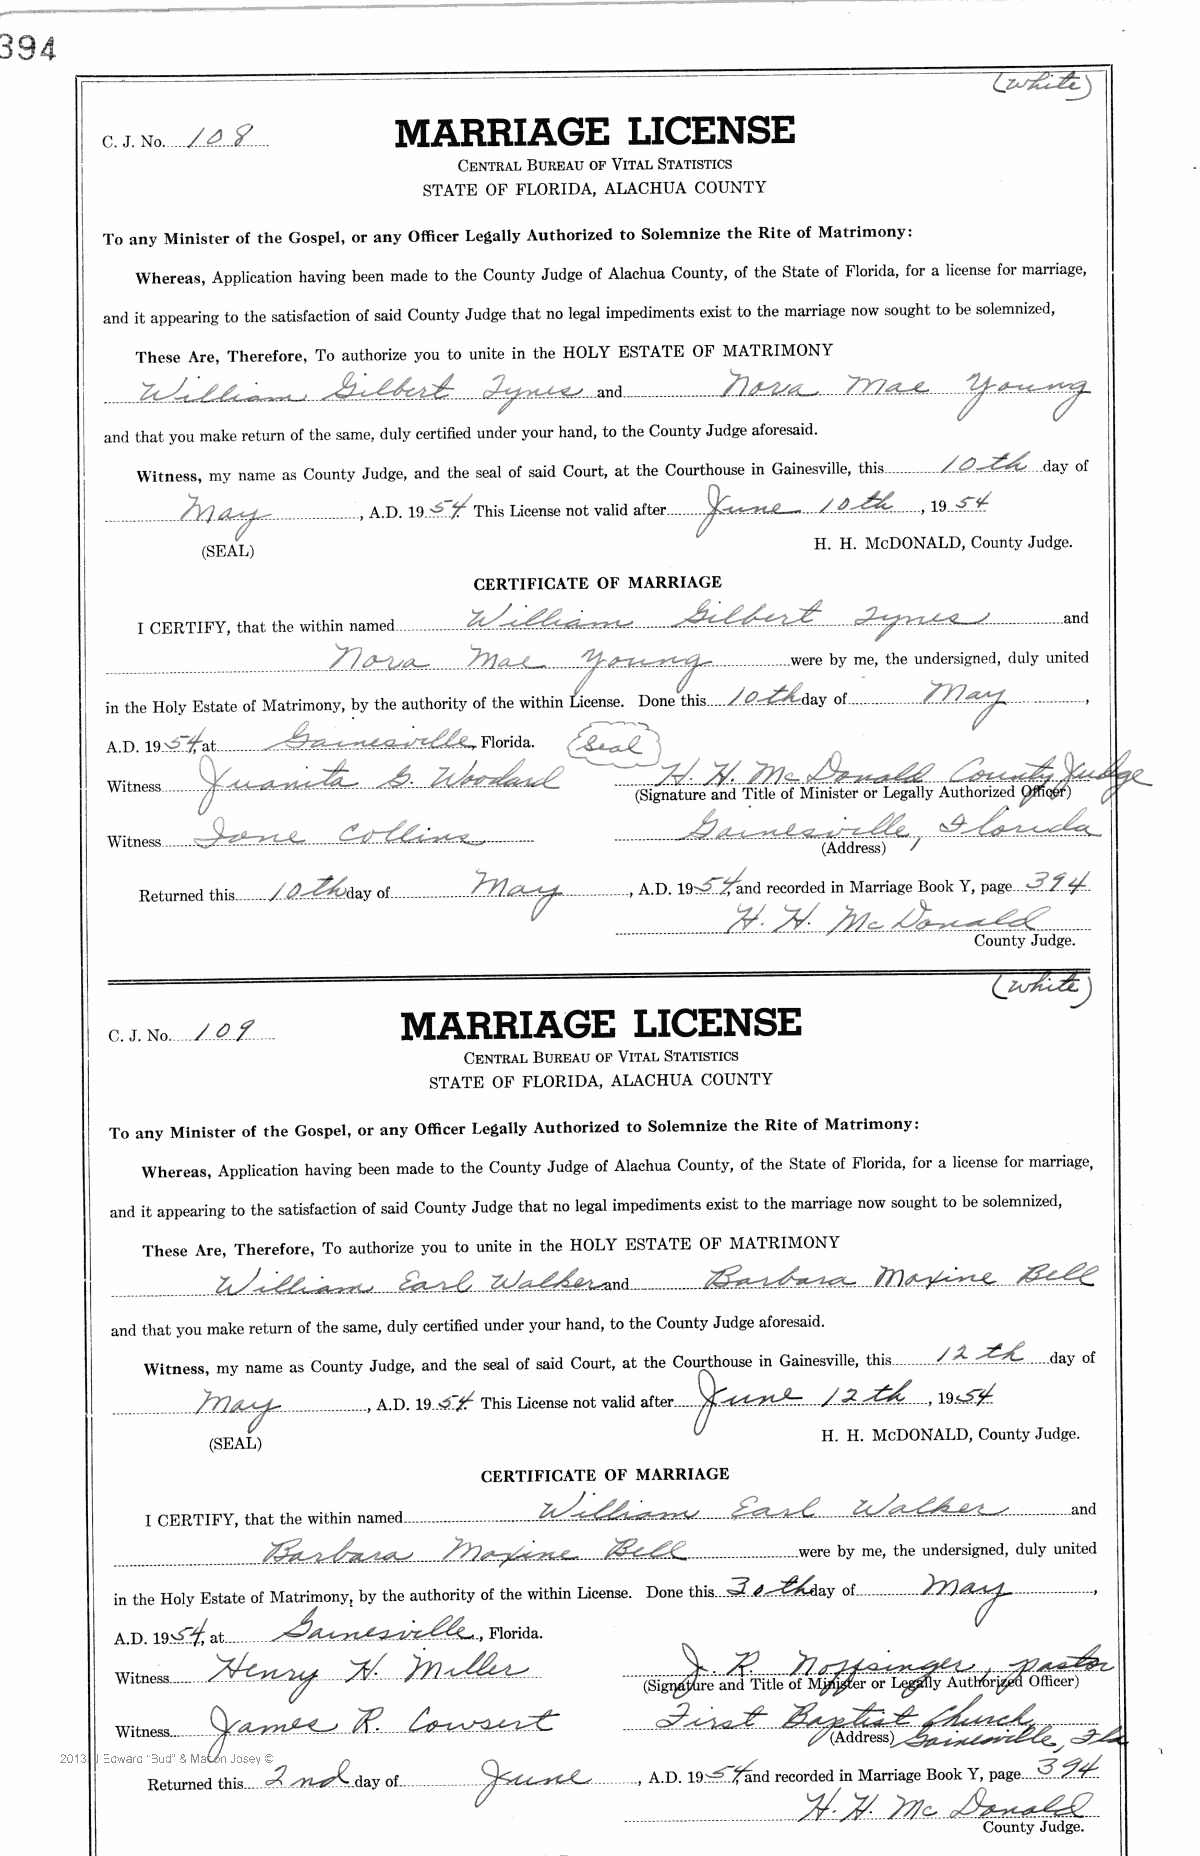 394
(White)
C. J. No. 108
MARRIAGE LICENSE
CENTRAL BUREAU OF VITAL STATISTICS
STATE OF FLORIDA, ALACHUA COUNTY
To any Minister of the Gospel, or any Officer Legally Authorized to Solemnize the Rite of Matrimony:
Whereas, Application having been made to the County Judge of Alachua County, of the State of Florida, for a license for marriage,
and it appearing to the satisfaction of said County Judge that no legal impediments exist to the marriage now sought to be solemnized,
These Are, Therefore, To authorize you to unite in the HOLY ESTATE OF MATRIMONY
William Gilbert Tynes and Nora Mae Young
and that you make return of the same, duly certified under your hand, to the County Judge aforesaid.
Witness, my name as County Judge, and the seal of said Court, at the Courthouse in Gainesville, this 10th day of
May, A.D. 1954. This License not valid after June 10th, 1954
(SEAL) H. H. McDONALD, County Judge.
CERTIFICATE OF MARRIAGE
I CERTIFY, that the within named William Gilbert Tynes and
Nora Mae Young were by me, the undersigned, duly united
in the Holy Estate of Matrimony, by the authority of the within License. Done this 10th day of May,
A.D. 1954, at Gainesville, Florida. (Seal)
Witness Juanita G. Woodard H. H. McDonald County Judge
(Signature and Title of Minister or Legally Authorized Officer)
Witness Ione Collins Gainesville, Florida
(Address)
Returned this 10th day of May, A.D. 1954, and recorded in Marriage Book Y, page 394
H. H. McDonald
County Judge.
(White)
C. J. No. 109
MARRIAGE LICENSE
CENTRAL BUREAU OF VITAL STATISTICS
STATE OF FLORIDA, ALACHUA COUNTY
To any Minister of the Gospel, or any Officer Legally Authorized to Solemnize the Rite of Matrimony:
Whereas, Application having been made to the County Judge of Alachua County, of the State of Florida, for a license for marriage,
and it appearing to the satisfaction of said County Judge that no legal impediments exist to the marriage now sought to be solemnized,
These Are, Therefore, To authorize you to unite in the HOLY ESTATE OF MATRIMONY
William Earl Walker and Barbara Maxine Bell
and that you make return of the same, duly certified under your hand, to the County Judge aforesaid.
Witness, my name as County Judge, and the seal of said Court, at the Courthouse in Gainesville, this 12th day of
May, A.D. 1954. This License not valid after June 12th, 1954
(SEAL) H. H. McDONALD, County Judge.
CERTIFICATE OF MARRIAGE
I CERTIFY, that the within named William Earl Walker and
Barbara Maxine Bell were by me, the undersigned, duly united
in the Holy Estate of Matrimony, by the authority of the within License. Done this 30th day of May,
A.D. 1954, at Gainesville, Florida.
Witness Henry H. Miller J. R. Noffsinger, pastor
(Signature and Title of Minister or Legally Authorized Officer)
Witness James R. Cowsert First Baptist Church
(Address) Gainesville, Fla
2013 J Edward "Bud" & Macon Josey ©
Returned this 2nd day of June, A.D. 1954, and recorded in Marriage Book Y, page 394
H. H. McDonald
County Judge.